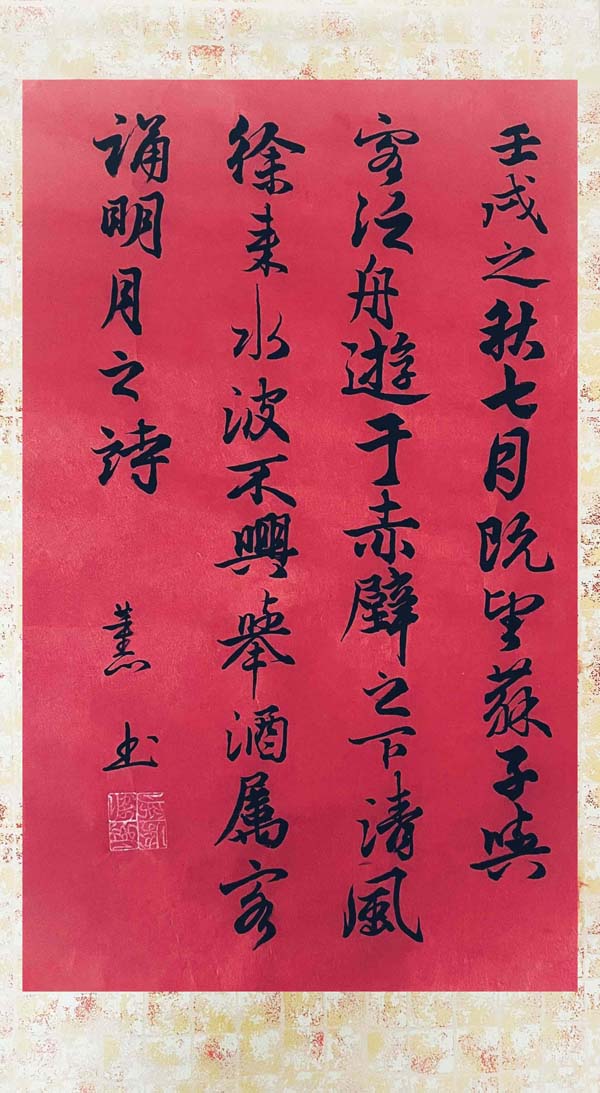 壬戌之秋七月既望蘇子與
客泛舟遊于赤壁之下清風
徐来水波不興舉酒属客
誦明月之詩
書